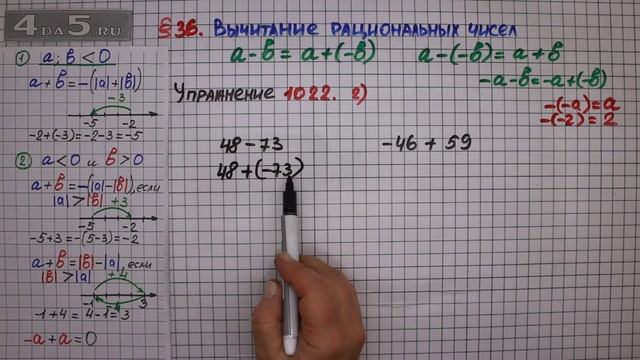 4DA5.RU
§ 36. Вычитание рациональных чисел
a-b = a+(-b)
a-(-b) = a+b
-a-b=-a+(-b)
-(-a)=a
-(-2)=2
Упражнение 1022. 2)
48-73
48+(-73)
-46+59
1) a; b < 0
a+b=-(|a|+|b|)
-3
-5 -2
-2+(-3)=-2-3=-5
2) a<0 и b>0
a+b=-(|a|-|b|), если
|a|>|b| +3
-5 -2
-5+3=-(5-3)=-2
a+b=|b|-|a|, если
|b|>|a| +4
-1 -4 3
-1+4=4-1=3
-a+a=0